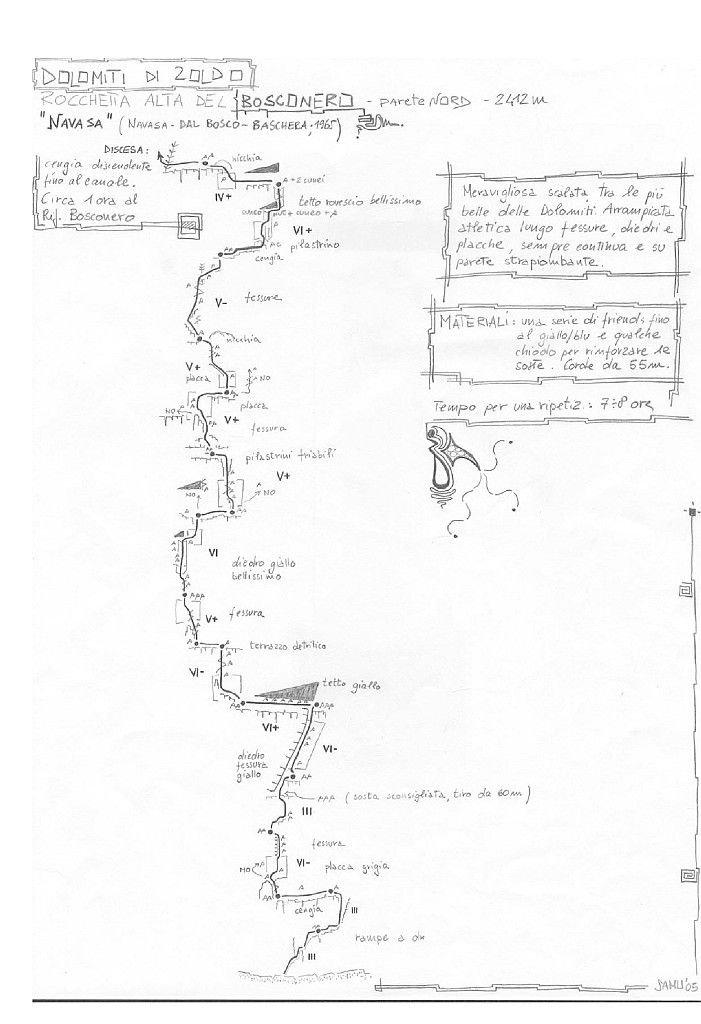 DOLOMITI DI ZOLDO
ROCCHETTA ALTA DEL BOSCONERO - parete NORD - 2412 m
"NAVASA" (NAVASA - DAL BOSCO - BASCHERA, 1965)
DISCESA:
cengia discendente
fino al canale.
Circa 1 ora al
Rif. Bosconero
AA
nicchia
IV+
A + 2 cunei
tetto rovescio bellissimo
cuneo
cuneo + A
VI+
pilastrino
cengia
V-
fessure
nicchia
V+
placca
NO
AA
placca
NO
V+
fessura
AA
pilastrini friabili
V+
NO
NO
VI
diedro giallo
bellissimo
AAA
V+
fessura
terrazzo detritico
VI-
tetto giallo
AA
AAA
VI+
VI-
diedro
fessura
giallo
AA
AAA (sosta sconsigliata, tiro da 60 m)
III
AA
fessura
VI-
placca grigia
NO
cengia
III
rampe a dx
III
Meravigliosa scalata, tra le più
belle delle Dolomiti. Arrampicata
atletica lungo fessure, diedri e
placche, sempre continua e su
parete strapiombante.
MATERIALI: una serie di friends fino
al giallo/blu e qualche
chiodo per rinforzare le
soste. Corde da 55m.
Tempo per una ripetiz.: 7÷8 ore
SAMU '05